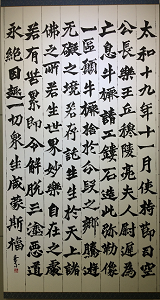 太和十九年十一月使持節司空
公長樂王丘穆陵亮夫人尉遲為
亡息牛橛請工鏤石造此彌勒像
一區願牛橛捨於分段之鄉騰遊
無礙之境若存託生生於天上諸
佛之所若生世界妙樂自在之處
若有苦累即令解脫三塗惡道
永絕因趣一切眾生咸蒙斯福